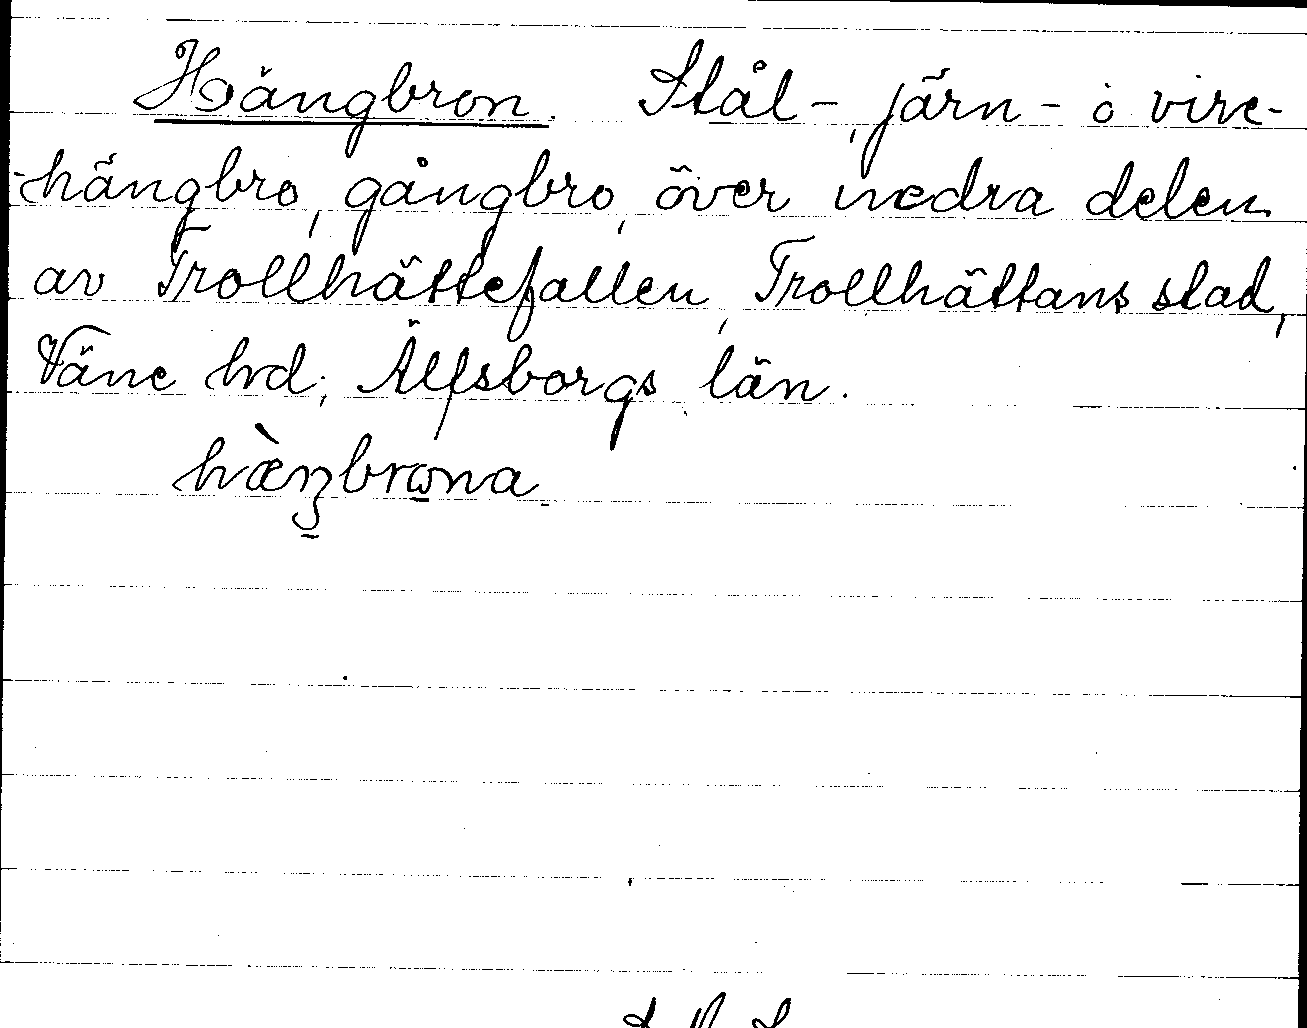 Hängbron. Stål-, järn- o vire-
-hängbro, gångbro, över nedra delen
av Trollhättefallen, Trollhättans stad,
Väne hd, Älfsborgs län.